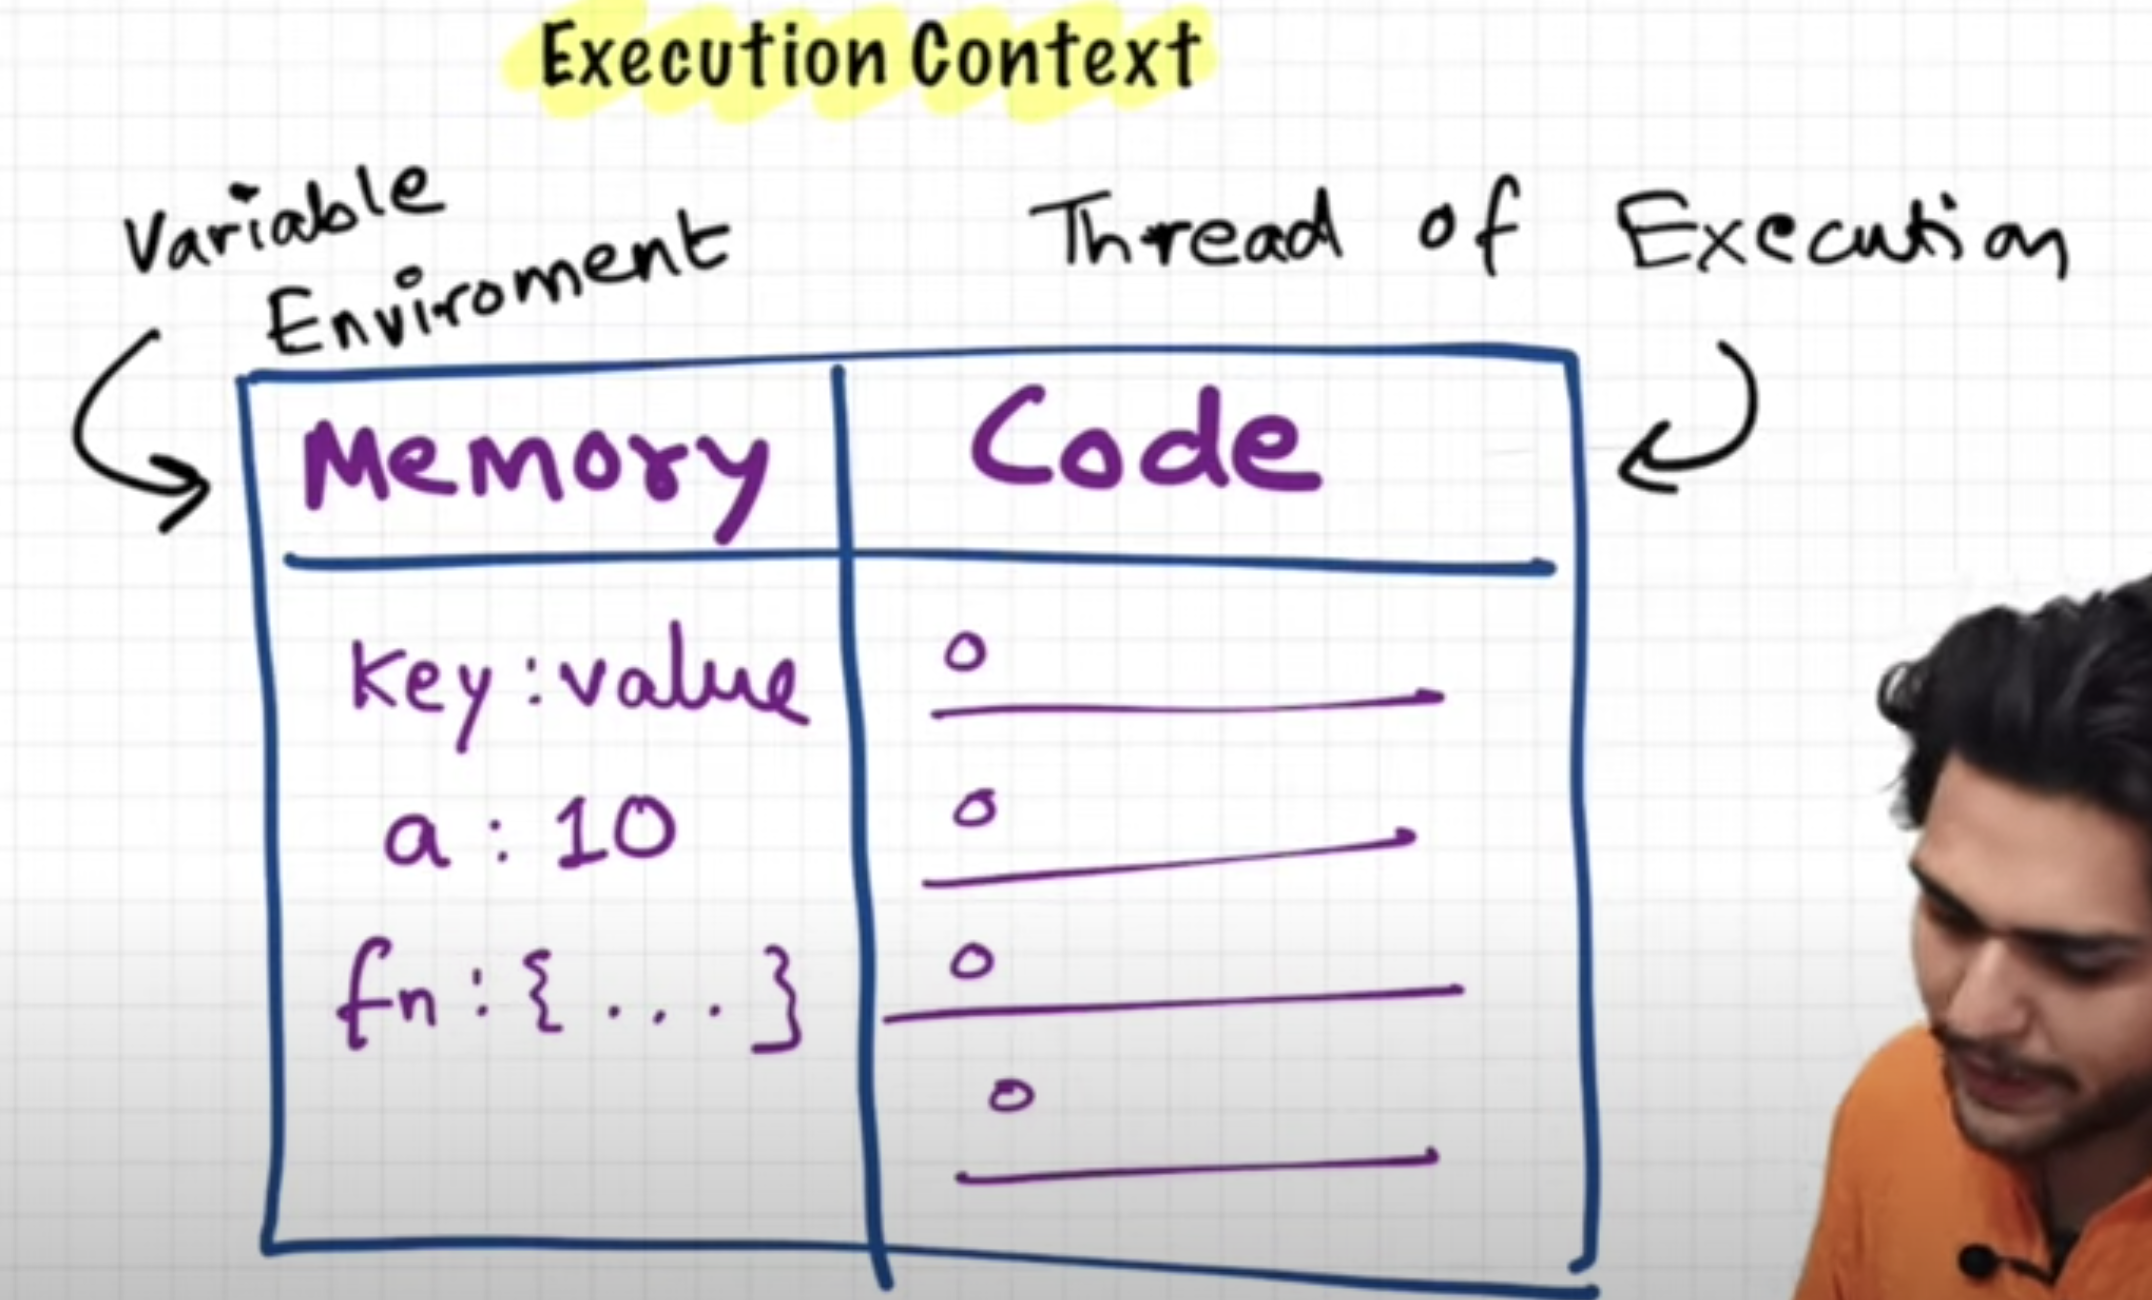 Execution Context
Variable
Enviroment
Thread of Execution
Memory
Code
key : value
a : 10
fn : { . . . }